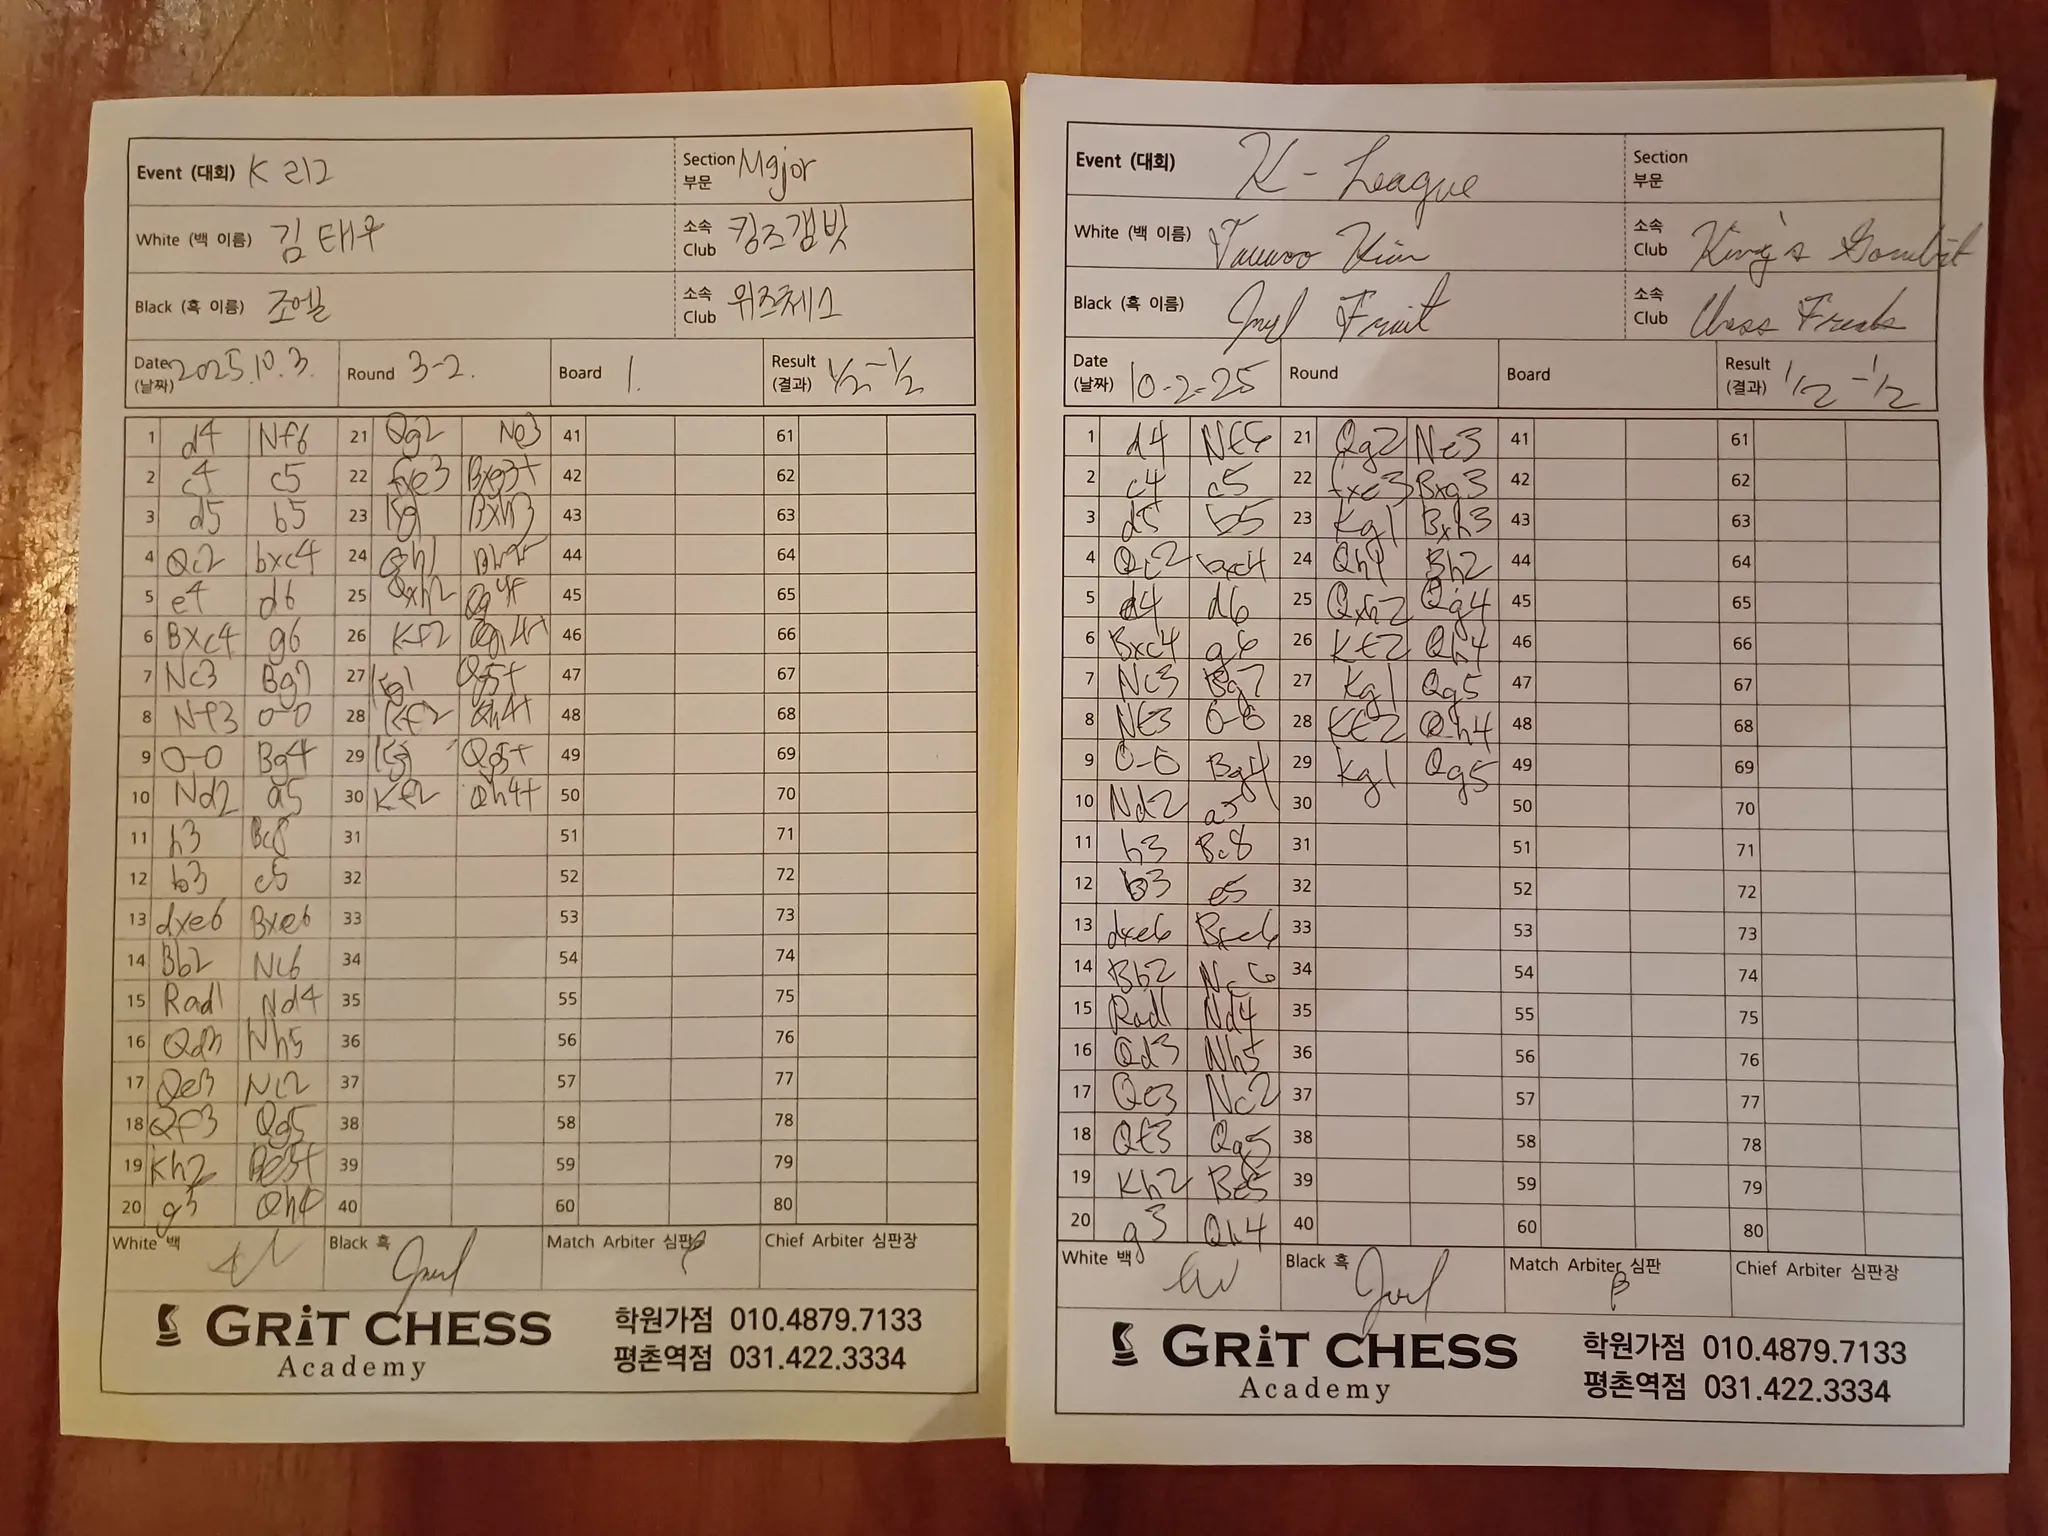 Event (대회) K 리그
Section 부문 Major
White (백 이름) 김태우
소속 Club 킹즈갬빗
Black (흑 이름) 조엘
소속 Club 위즈체스
Date (날짜) 2025.10.3.
Round 3-2.
Board 1.
Result (결과) 1/2-1/2
1 d4 Nf6 21 Qg2 Ne3 41 61
2 c4 c5 22 fxe3 Bxg3+ 42 62
3 d5 b5 23 Kg1 Bxh3 43 63
4 Qc2 bxc4 24 Qh1 Bh2+ 44 64
5 e4 d6 25 Qxh2 Qg4+ 45 65
6 Bxc4 g6 26 Kf2 Qh4+ 46 66
7 Nc3 Bg7 27 Kg1 Qg5+ 47 67
8 Nf3 0-0 28 Kf2 Qh4+ 48 68
9 0-0 Bg4 29 Kg1 Qg5+ 49 69
10 Nd2 a5 30 Kf2 Qh4+ 50 70
11 h3 Bc8 31 51 71
12 b3 e5 32 52 72
13 dxe6 Bxe6 33 53 73
14 Bb2 Nc6 34 54 74
15 Rad1 Nd4 35 55 75
16 Qd3 Nh5 36 56 76
17 Qe3 Nc2 37 57 77
18 Qf3 Qg5 38 58 78
19 Kh2 Be5+ 39 59 79
20 g3 Qh4 40 60 80
White 백
Black 흑 Joel
Match Arbiter 심판
Chief Arbiter 심판장
GRiT CHESS
Academy
학원가점 010.4879.7133
평촌역점 031.422.3334
Event (대회) K-League
Section 부문
White (백 이름) Taewoo Kim
소속 Club King's Gambit
Black (흑 이름) Joel Fruit
소속 Club Chess Freaks
Date (날짜) 10-2-25
Round
Board
Result (결과) 1/2-1/2
1 d4 Nf6 21 Qg2 Ne3 41 61
2 c4 c5 22 fxe3 Bxg3 42 62
3 d5 b5 23 Kg1 Bxh3 43 63
4 Qc2 bxc4 24 Qh1 Bh2 44 64
5 e4 d6 25 Qxh2 Qg4 45 65
6 Bxc4 g6 26 Kf2 Qh4 46 66
7 Nc3 Bg7 27 Kg1 Qg5 47 67
8 Nf3 0-0 28 Kf2 Qh4 48 68
9 0-0 Bg4 29 Kg1 Qg5 49 69
10 Nd2 a5 30 50 70
11 h3 Bc8 31 51 71
12 b3 e5 32 52 72
13 dxe6 Bxe6 33 53 73
14 Bb2 Nc6 34 54 74
15 Rad1 Nd4 35 55 75
16 Qd3 Nh5 36 56 76
17 Qe3 Nc2 37 57 77
18 Qf3 Qg5 38 58 78
19 Kh2 Be5 39 59 79
20 g3 Qh4 40 60 80
White 백
Black 흑 Joel
Match Arbiter 심판
Chief Arbiter 심판장
GRiT CHESS
Academy
학원가점 010.4879.7133
평촌역점 031.422.3334